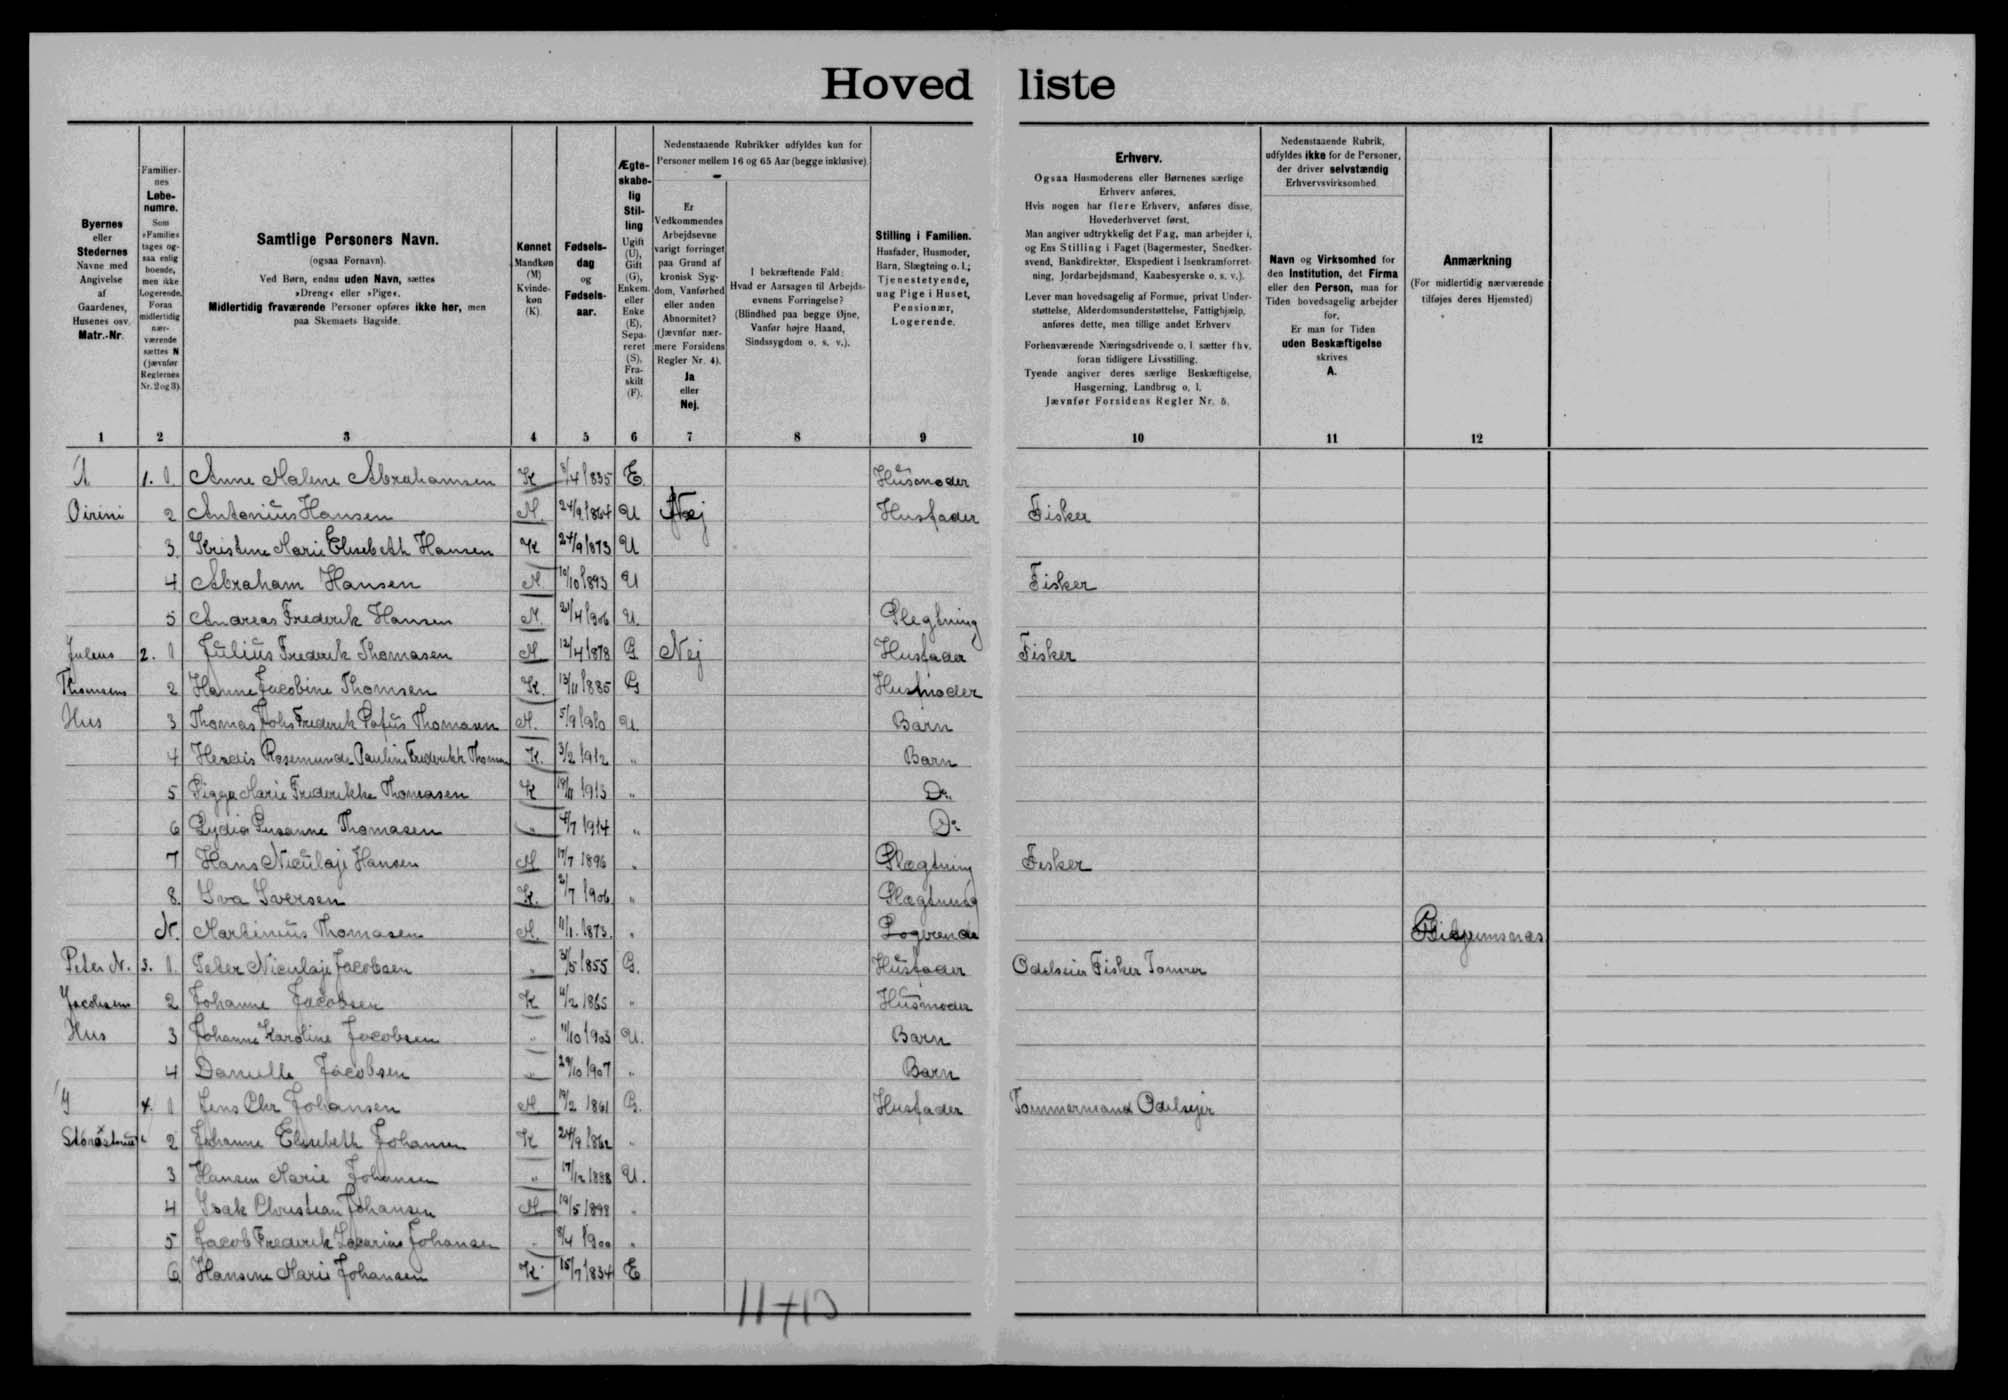 Hoved liste
Byernes eller Stedernes Navne med Angivelse af Gaardenes, Husenes osv. Matr.-Nr.
Familiernes Løbenumre. Som »Familie« tages ogsaa enlig boende, men ikke Logerende. Foran midlertidig nærværende sættes N (jævnfør Reglernes Nr. 2 og 3).
Samtlige Personers Navn.
(ogsaa Fornavn).
Ved Børn, endnu uden Navn, sættes
»Dreng« eller »Pige«.
Midlertidig fraværende Personer opføres ikke her, men
paa Skemaets Bagside.
Kønnet
Mandkøn
(M)
Kvindekøn
(K).
Fødselsdag
og
Fødselsaar.
Ægteskabelig Stilling
Ugift (U), Gift (G), Enkem. eller Enke (E), Separeret (S), Fraskilt (F).
Nedenstaaende Rubrikker udfyldes kun for
Personer mellem 16 og 65 Aar (begge inklusive)
Er
Vedkommendes
Arbejdsevne
varigt forringet
paa Grund af
kronisk Sygdom, Vanførhed
eller anden
Abnormitet?
(Jævnfør nærmere Forsidens
Regler Nr. 4).
Ja
eller
Nej.
I bekræftende Fald:
Hvad er Aarsagen til Arbejdsevnens Forringelse?
(Blindhed paa begge Øjne,
Vanfør højre Haand,
Sindssygdom o. s. v.).
Stilling i Familien.
Husfader, Husmoder,
Barn, Slægtning o. l.;
Tjenestetyende,
ung Pige i Huset,
Pensionær,
Logerende.
Erhverv.
Ogsaa Husmoderens eller Børnenes særlige
Erhverv anføres.
Hvis nogen har flere Erhverv, anføres disse,
Hovederhvervet først.
Man angiver udtrykkelig det Fag, man arbejder i,
og Ens Stilling i Faget (Bagermester, Snedkersvend, Bankdirektør, Ekspedient i Isenkramforretning, Jordarbejdsmand, Kaabesyerske o. s. v.).
Lever man hovedsagelig af Formue, privat Understøttelse, Alderdomsunderstøttelse, Fattighjælp,
anføres dette, men tillige andet Erhverv
Forhenværende Næringsdrivende o. l. sætter fhv.
foran tidligere Livsstilling.
Tyende angiver deres særlige Beskæftigelse,
Husgerning, Landbrug o. l.
Jævnfør Forsidens Regler Nr. 5.
Nedenstaaende Rubrik,
udfyldes ikke for de Personer,
der driver selvstændig
Erhvervsvirksomhed
Navn og Virksomhed for
den Institution, det Firma
eller den Person, man for
Tiden hovedsagelig arbejder
for.
Er man for Tiden
uden Beskæftigelse
skrives
A.
Anmærkning
(For midlertidig nærværende
tilføjes deres Hjemsted)
1 2 3 4 5 6 7 8 9 10 11 12
1. 1 Anne Malene Abrahamsen K 1835 E Husmoder
2 Antonius Hansen M. 24/9 1864 U Nej Husfader Fisker
3. Kristine Marie Elisebeth Hansen K 24/9 1873 U
4 Abraham Hansen M 10/10 1893 U Fisker
5 Andreas Frederik Hansen M. 21/4 1906 U. Slegtning
Julius 2. 1 Julius Frederik Thomasen M 12/4 1878 G Nej Husfader Fisker
Thomsens 2 Hanne Jacobine Thomsen K. 13/11 1885 G Husmoder
Hus 3 Thomas Johs Frederik Thomasen M. 5/9 1910 U. Barn
4 Herdis Rosemunda Pauline Frederikke K. 3/2 1912 " Barn
5 Sigga Marie Frederikke Thomasen K 1913 " Do.
6 Lydia Susanne Thomasen " /7 1914 " Do
7 Hans Niculaji Hansen M 17/7 1896 " Slægtning Fisker
8. Iva Iversen K. 2/7 1906 " Slægtning
N. Martinius Thomasen M. 11/1. 1873. " Logerende
Peter N. 3. 1. Peter Niculaje Jacobsen " 31/5 1855 G. Husfader Odelseier Fisker Tomrer
Jacobsens 2 Johanne Jacobsen K 4/2 1865 " Husmoder
Hus 3 Johanne Karoline Jacobsen " 11/10 1903 U. Barn
4 Danielle Jacobsen " 29/10 1907 " Barn
I 4. 1 Jens Chr Johansen M 19/2 1861 G. Husfader Tommermand Odelsejer
2 Johanne Elisebeth Johansen K 24/9 1862 "
3 Hansen Marie Johansen " 17/12 1888 U.
4 Isak Christian Johansen M 19/5 1898 "
5 Jacob Frederik Johansen " 8/4 1900 "
6 Hansine Marie Johansen K 15/7 1834 E
11+13